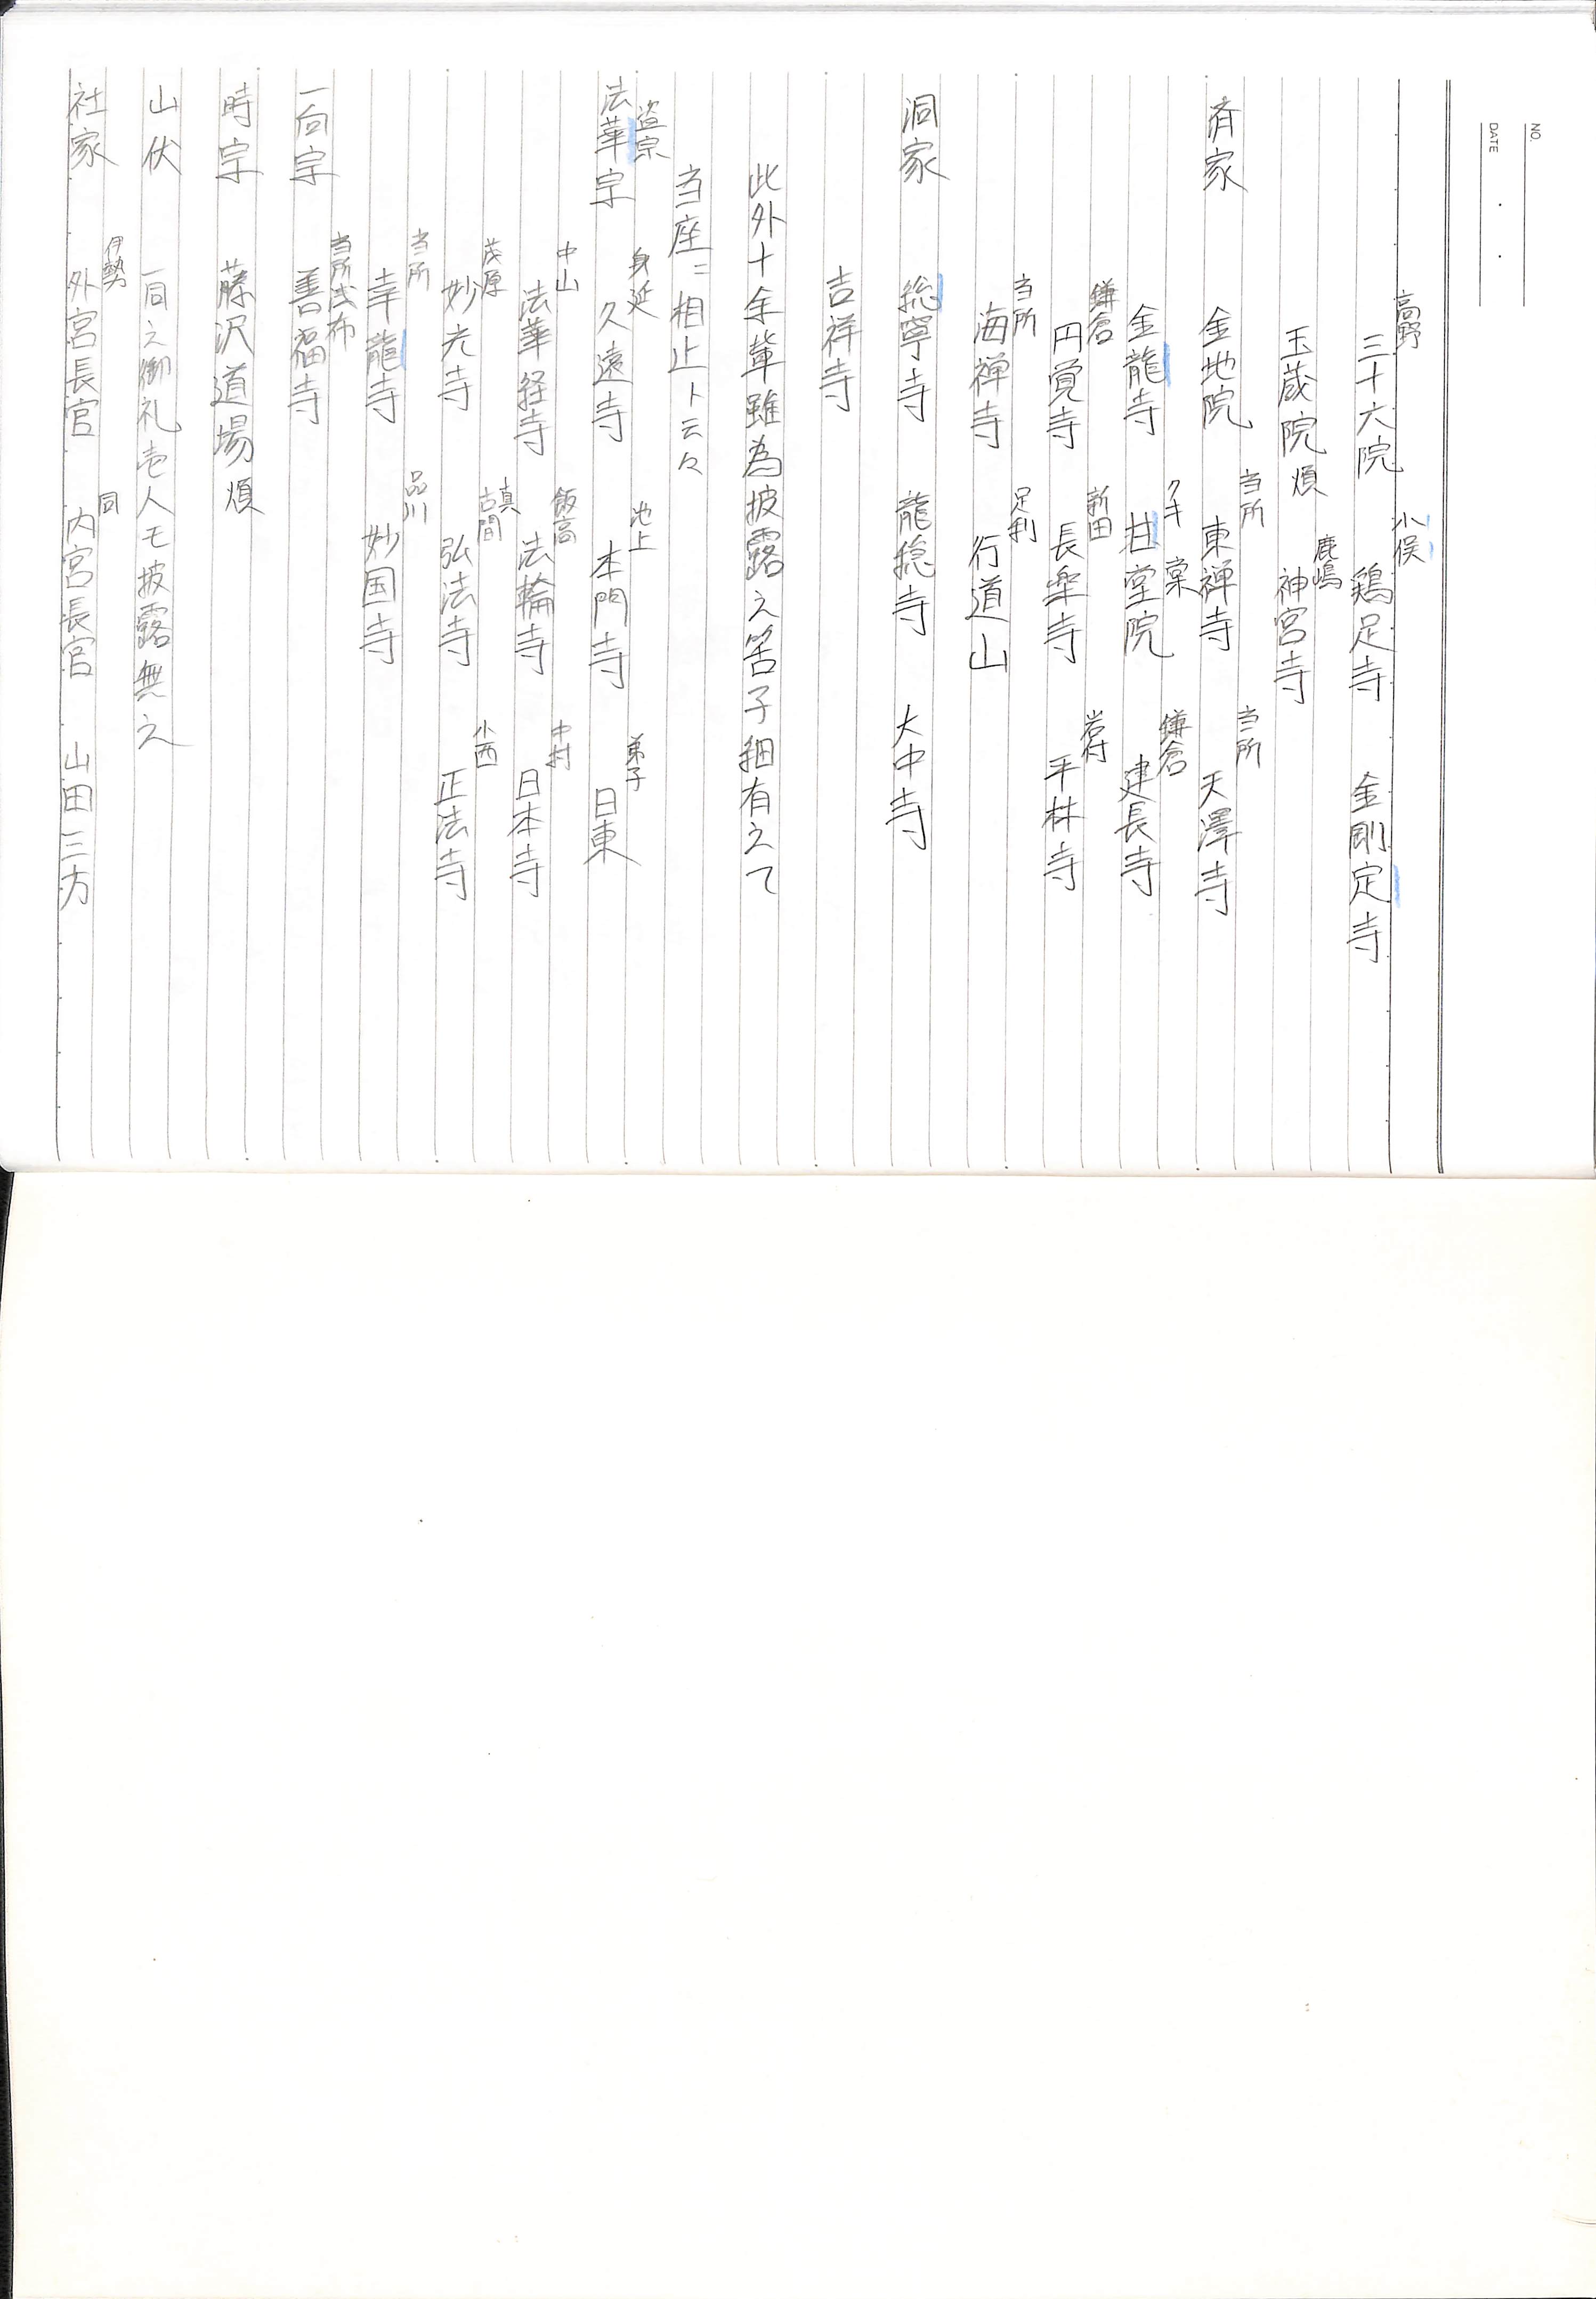 NO.
DATE
高野 小俣
三十六院 鶏足寺 金剛定寺
鹿嶋
玉蔵院煩 神宮寺
当所 当所
済家 金地院 東禅寺 天澤寺
クキ 棠 鎌倉
金龍寺 甘堂院 建長寺
鎌倉 新田 岩付
円覚寺 長楽寺 平林寺
当所 足利
海禅寺 行道山
洞家 総寧寺 龍穏寺 大中寺
吉祥寺
此外十余輩雖為披露之筈子細有之て
当座ニ相止ト云々
盗宗 身延 池上 弟子
法華宗 久遠寺 本門寺 日東
中山 飯高 中村
法華経寺 法輪寺 日本寺
茂原 真古間 小西
妙光寺 弘法寺 正法寺
当所 品川
幸龍寺 妙国寺
当所浅布
一向宗 善福寺
時宗 藤沢道場煩
山伏 一同之御礼壱人モ披露無之
伊勢 同
社家 外宮長官 内宮長官 山田三方